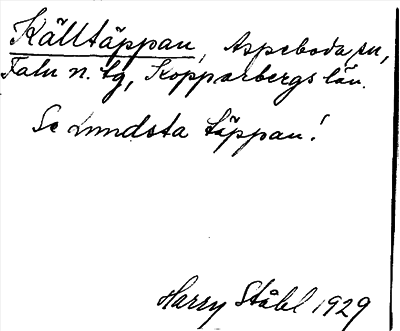 Källtäppan, Aspeboda sn,
Falu n. tg, Kopparbergs län.
Se Lundsta täppan!
Harry Ståhl 1929